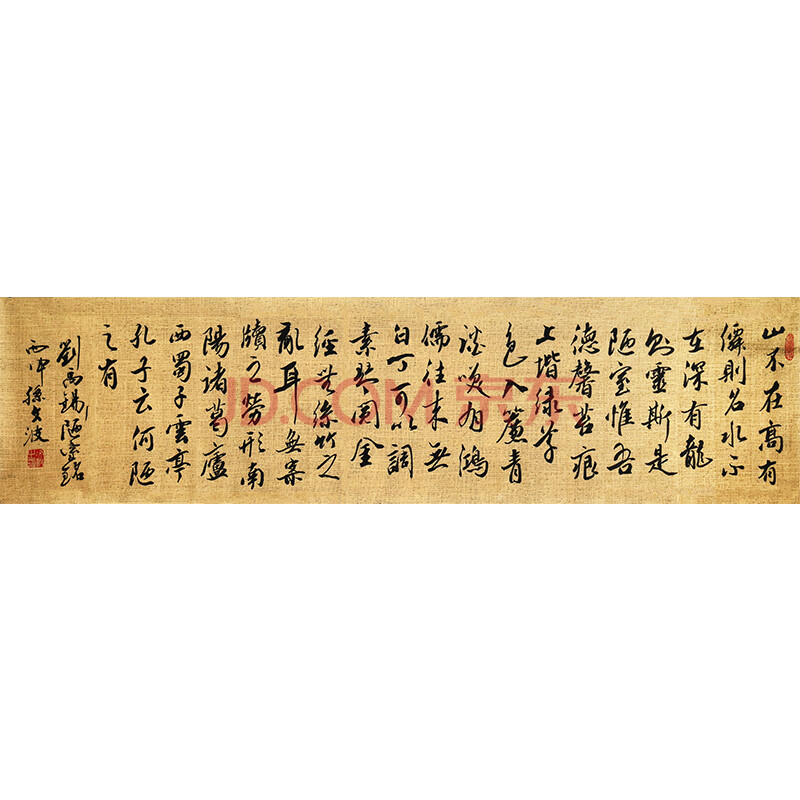 山不在高有
僊則名水不
在深有龍
则靈斯是
陋室惟吾
德馨苔痕
上堦绿草
色入簾青
談笑有鴻
儒往来无
白丁可以調
素琴閱金
經無絲竹之
亂耳無案
牘之勞形南
陽諸葛廬
西蜀子雲亭
孔子云何陋
之有
劉禹錫陋室銘
丙申孫文波
JD.COM 京东